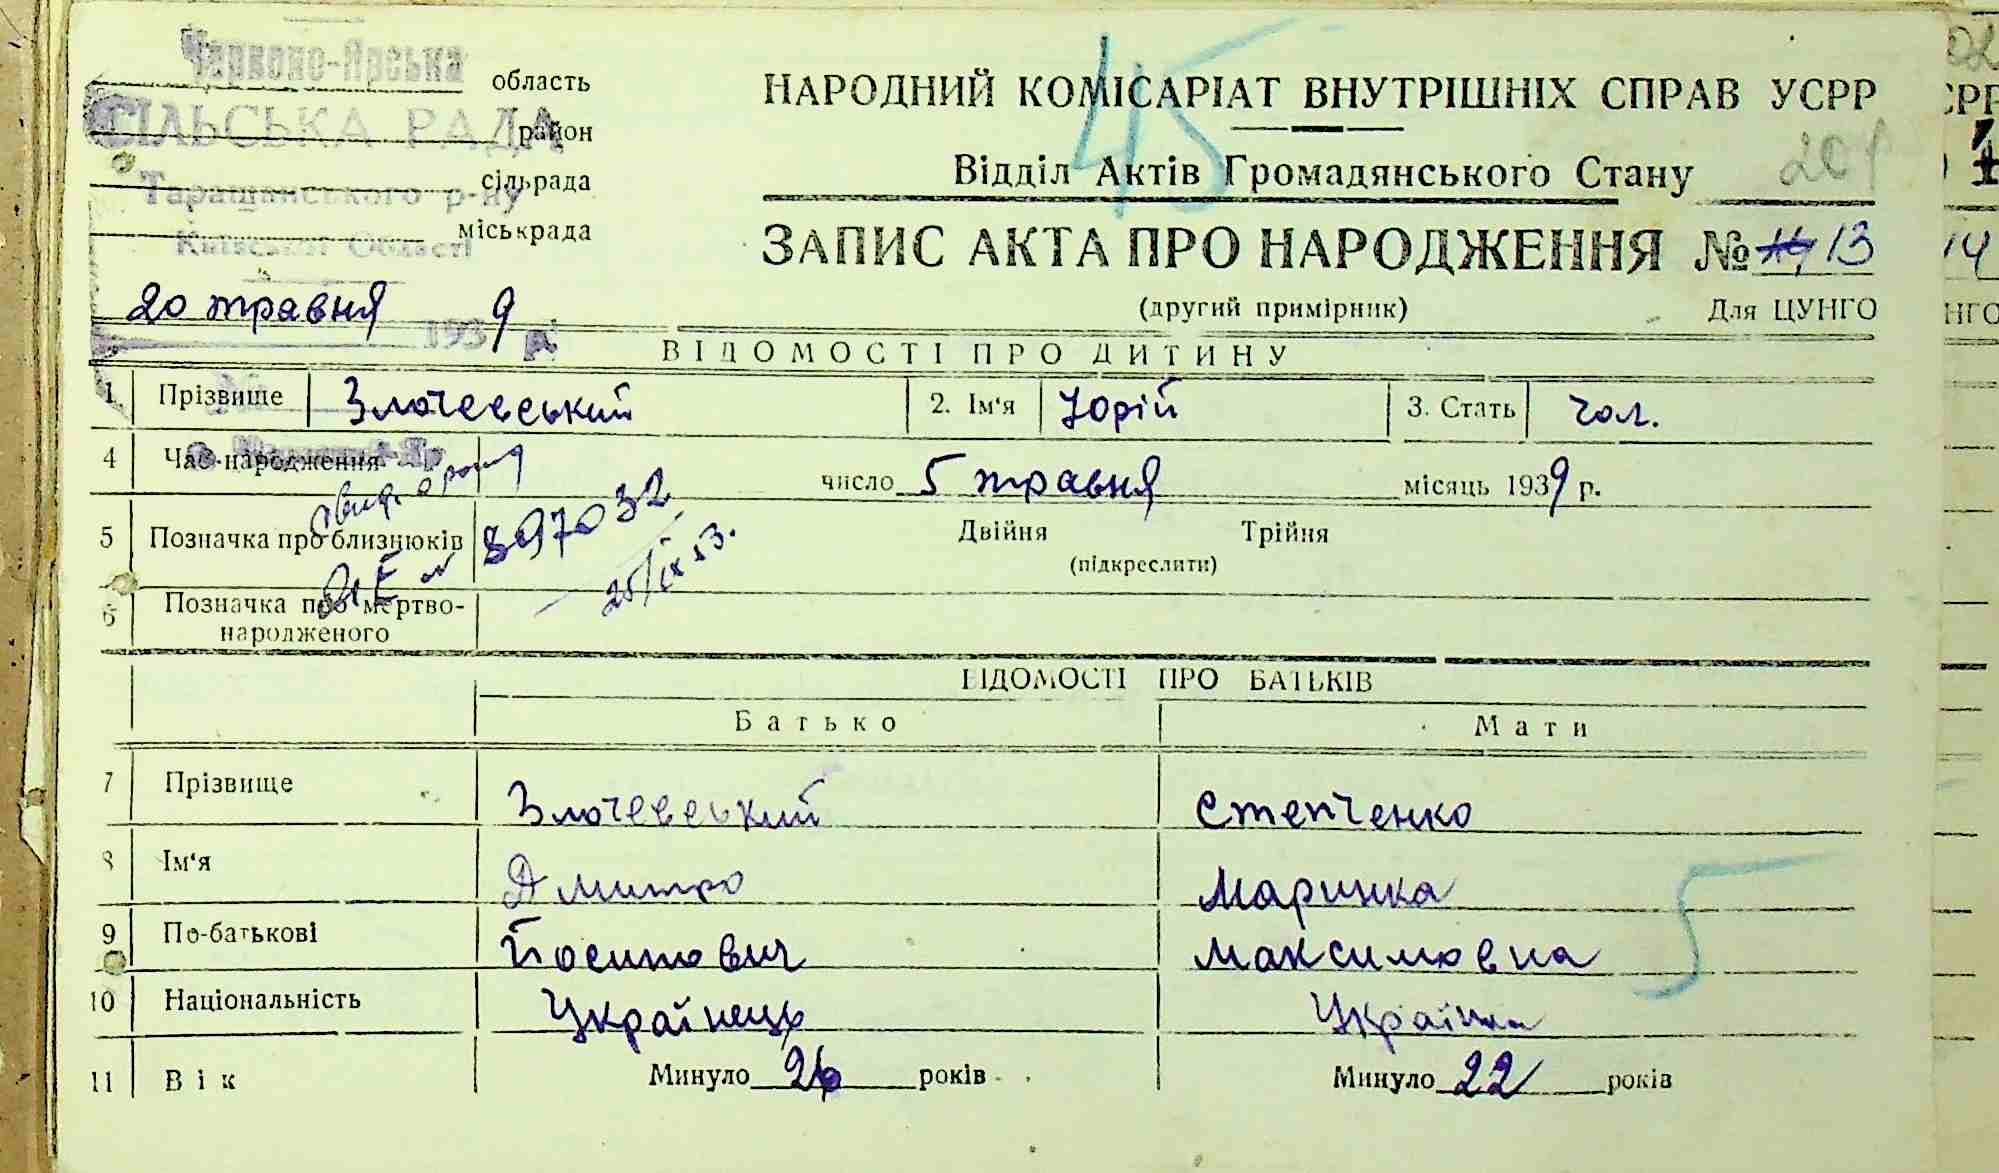 Червоно-Ярська
область
СІЛЬСЬКА РАДА
район
сільрада
Таращанського р-ну
міськрада
Київської Області
20 травня 1939
45
НАРОДНИЙ КОМІСАРІАТ ВНУТРІШНІХ СПРАВ УСРР
Відділ Актів Громадянського Стану
ЗАПИС АКТА ПРО НАРОДЖЕННЯ № 13
(другий примірник) Для ЦУНГО
ВІДОМОСТІ ПРО ДИТИНУ
1. Прізвище Злочевський 2. Ім'я Юрій 3. Стать чол.
4 Час народження число 5 травня місяць 1939 р.
5 Позначка про близнюків Двійня Трійня
(підкреслити)
897032
25/IX 53.
6 Позначка про мертво-
народженого
ВІДОМОСТІ ПРО БАТЬКІВ
Батько Мати
7 Прізвище Злочевський Степченко
8 Ім'я Дмитро Маринка
9 По-батькові Йосипович Максимовна
10 Національність Українець Українка
11 Вік Минуло 26 років Минуло 22 років
5